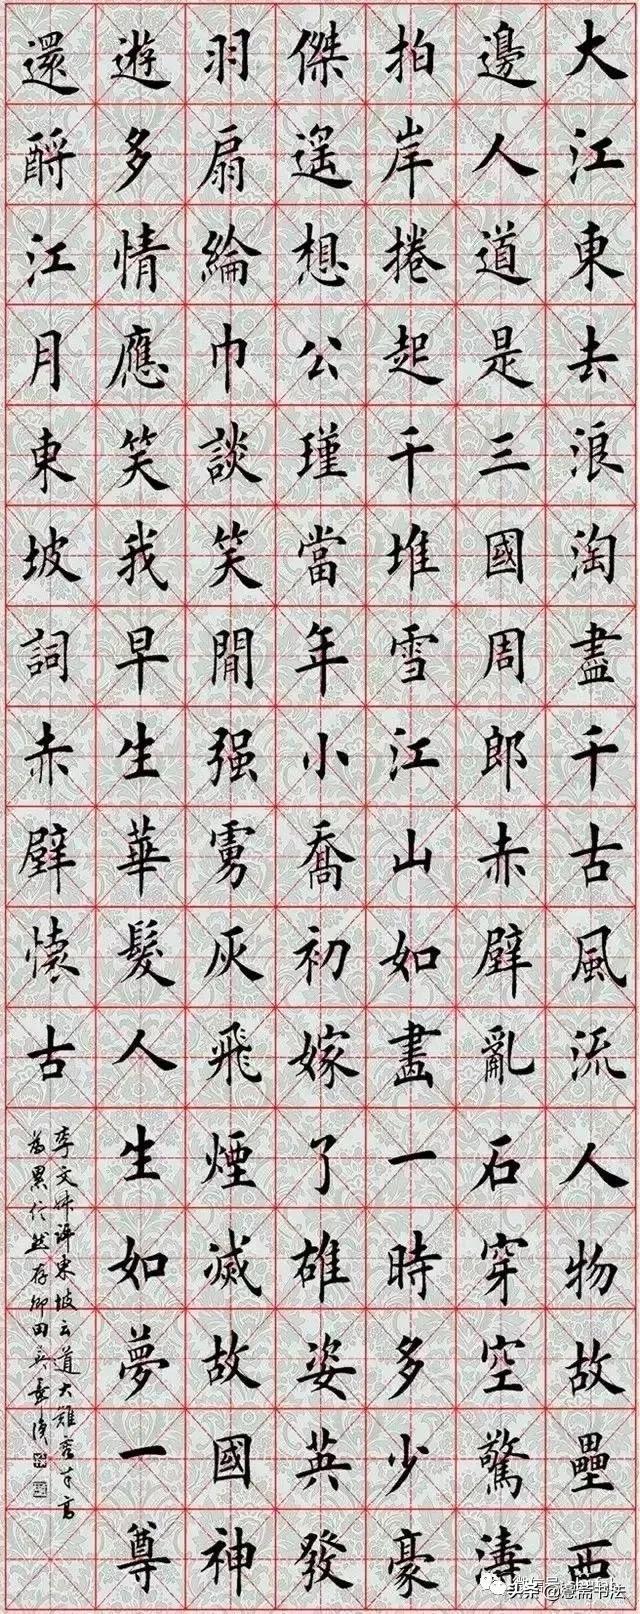 大江東去浪淘盡千古風流人物故壘西
邊人道是三國周郎赤壁亂石穿空驚濤
拍岸捲起千堆雪江山如畫一時多少豪
傑遙想公瑾當年小喬初嫁了雄姿英發
羽扇綸巾談笑間强虜灰飛煙滅故國神
遊多情應笑我早生華髮人生如夢一尊
還酹江月東坡詞赤壁懷古
李文叔評東坡云道大難容才高
為累信然存卿田英章
头条 @慧斋书法